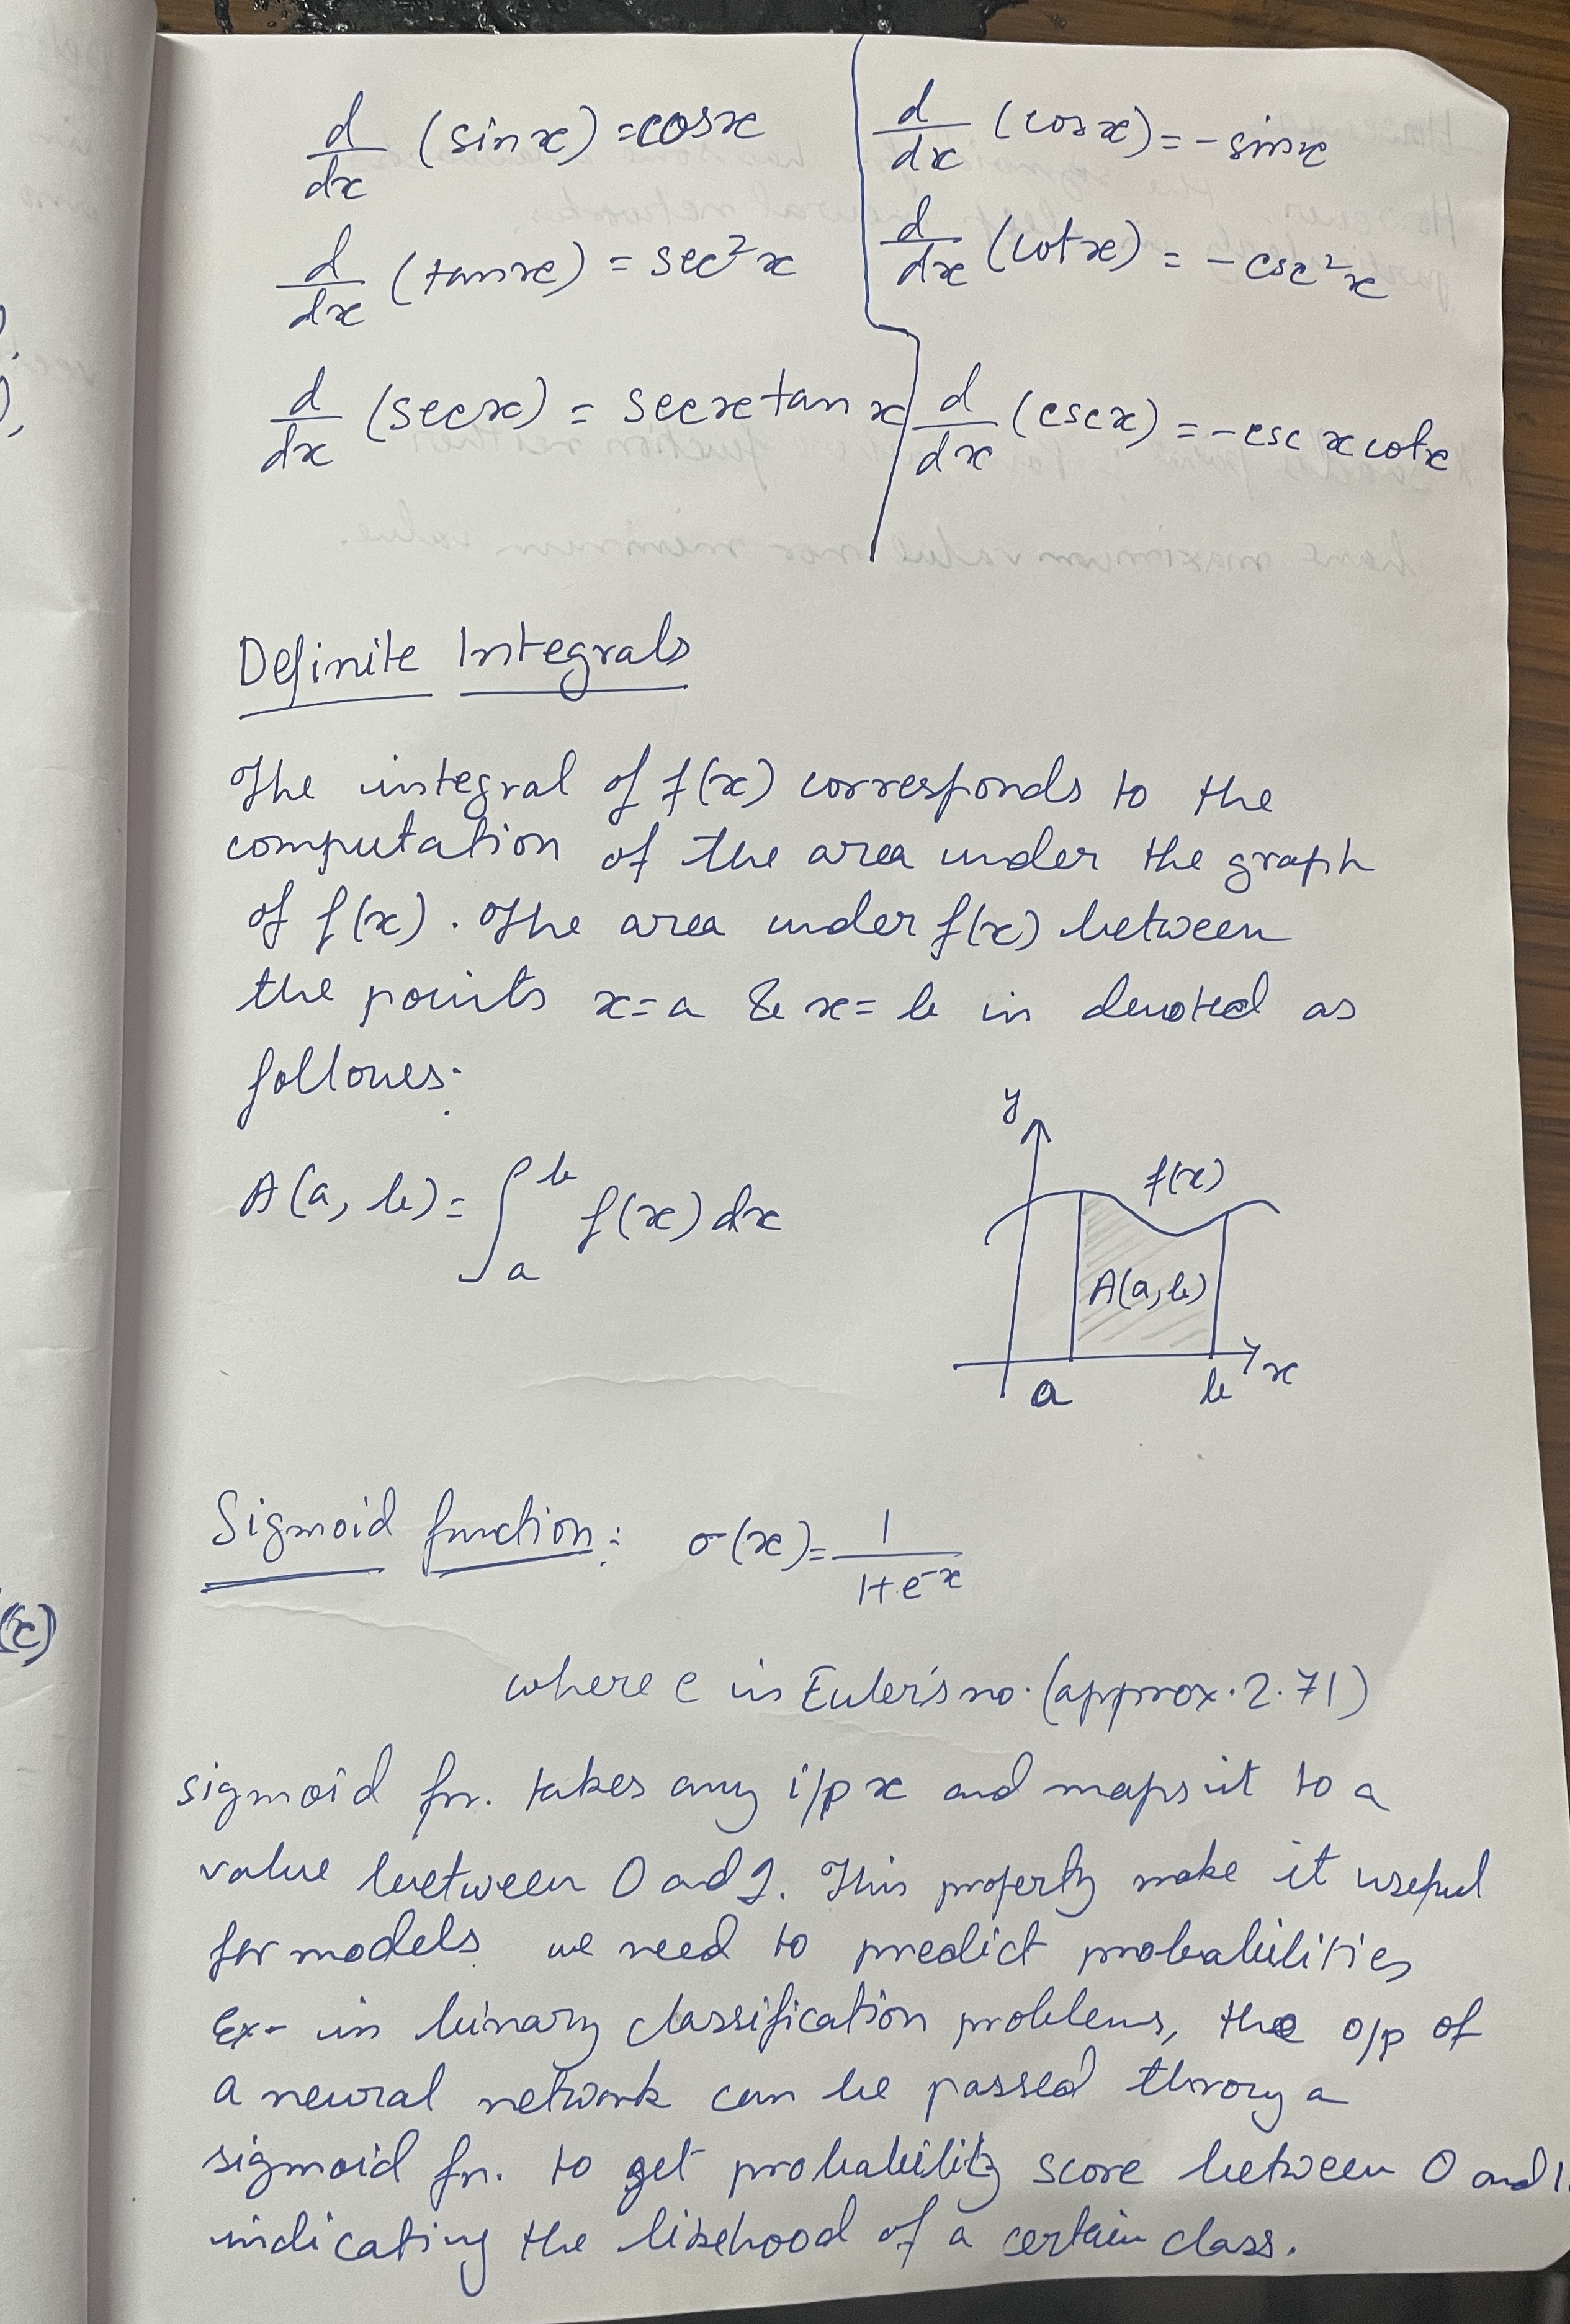 d/dx (sinx) = cosx
d/dx (cosx) = -sinx
d/dx (tanx) = sec²x
d/dx (cotx) = -csc²x
d/dx (secx) = secx tan x
d/dx (cscx) = -csc x cotx
Definite Integrals
The integral of f(x) corresponds to the
computation of the area under the graph
of f(x). The area under f(x) between
the points x=a & x=b is denoted as
follows:
A(a, b) = ∫_a^b f(x) dx
y
f(x)
A(a,b)
x
a
b
Sigmoid function: σ(x) = 1/(1+e^-x)
where e is Euler's no. (approx. 2.71)
sigmoid fn. takes any i/p x and maps it to a
value between 0 and 1. This property make it useful
for models we need to predict probabilities
Ex- in binary classification problems, the o/p of
a neural network can be passed throry a
sigmoid fn. to get probability score between 0 and 1.
indicating the likehood of a certain class.
(x)